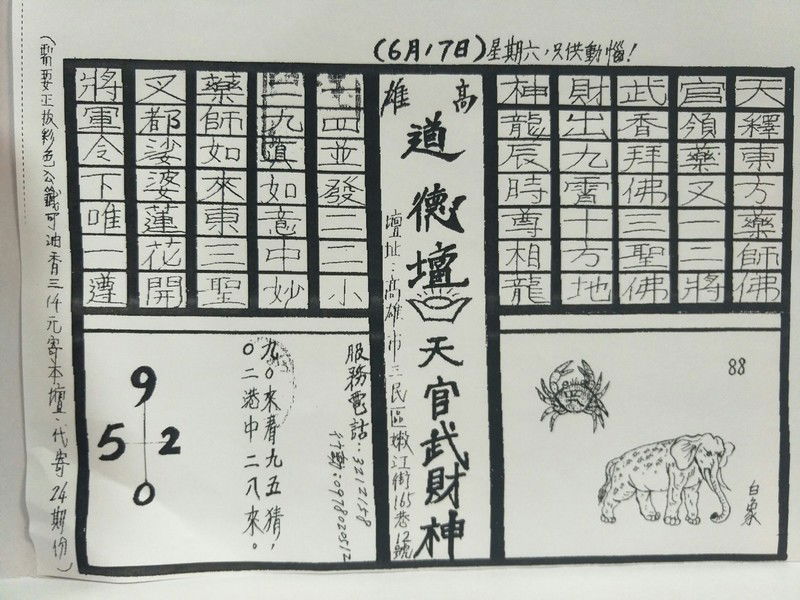 (6月17日)星期六,只供動惱!
天釋東方藥師佛
官領藥叉二將
武香拜佛三聖佛
財出九霄十方地
神龍辰時尊相龍
高雄
道德壇
天官武財神
壇址:高雄市三民區嫩江街165巷12號
四並發二二小
二九真如意中妙
藥師如來東三聖
叉都娑婆蓮花開
將軍令下唯一遵
88
白象
服務電話:3212158
行動:0978020512
九0來春九五猜,
0二港中二八來。
9
5 2
0